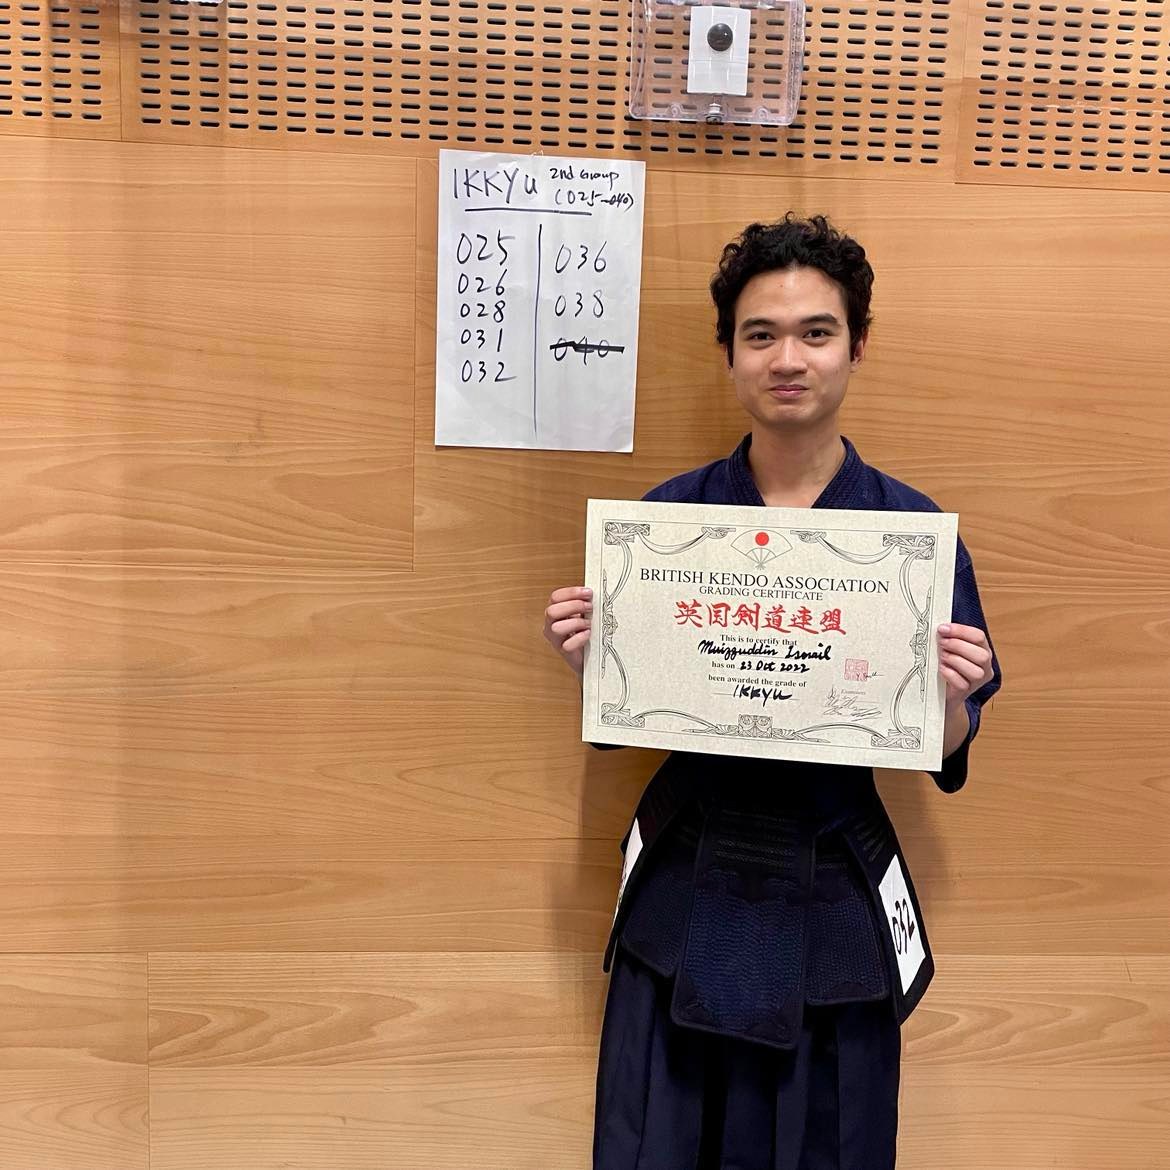 IKKYU 2nd Group
(025-040)
025
026
028
031
032
036
038
040
BRITISH KENDO ASSOCIATION
GRADING CERTIFICATE
英国剣道連盟
This is to certify that
Muizzuddin Ismail
has on 23 Oct 2022
been awarded the grade of
IKKYU
Examiners
032